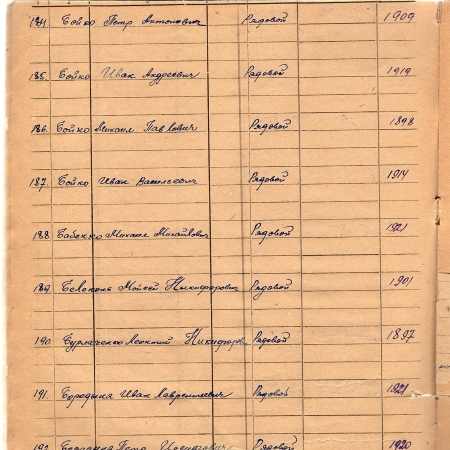 184. Бойко Петр Антонович Рядовой 1909
185. Бойко Иван Андреевич Рядовой 1919
186. Бойко Михаил Павлович Рядовой 1898
187. Бойко Иван Васильевич Рядовой 1914
188. Бабенко Михаил Михайлович Рядовой 1921
189. Белоконь Моисей Никифорович Рядовой 1901
190. Бурлаченко Леонтий Никифоров Рядовой 1897
191. Бородыня Иван Лаврентьевич Рядовой 1921
192. Бородыня Петр Иосифович Рядовой 1920